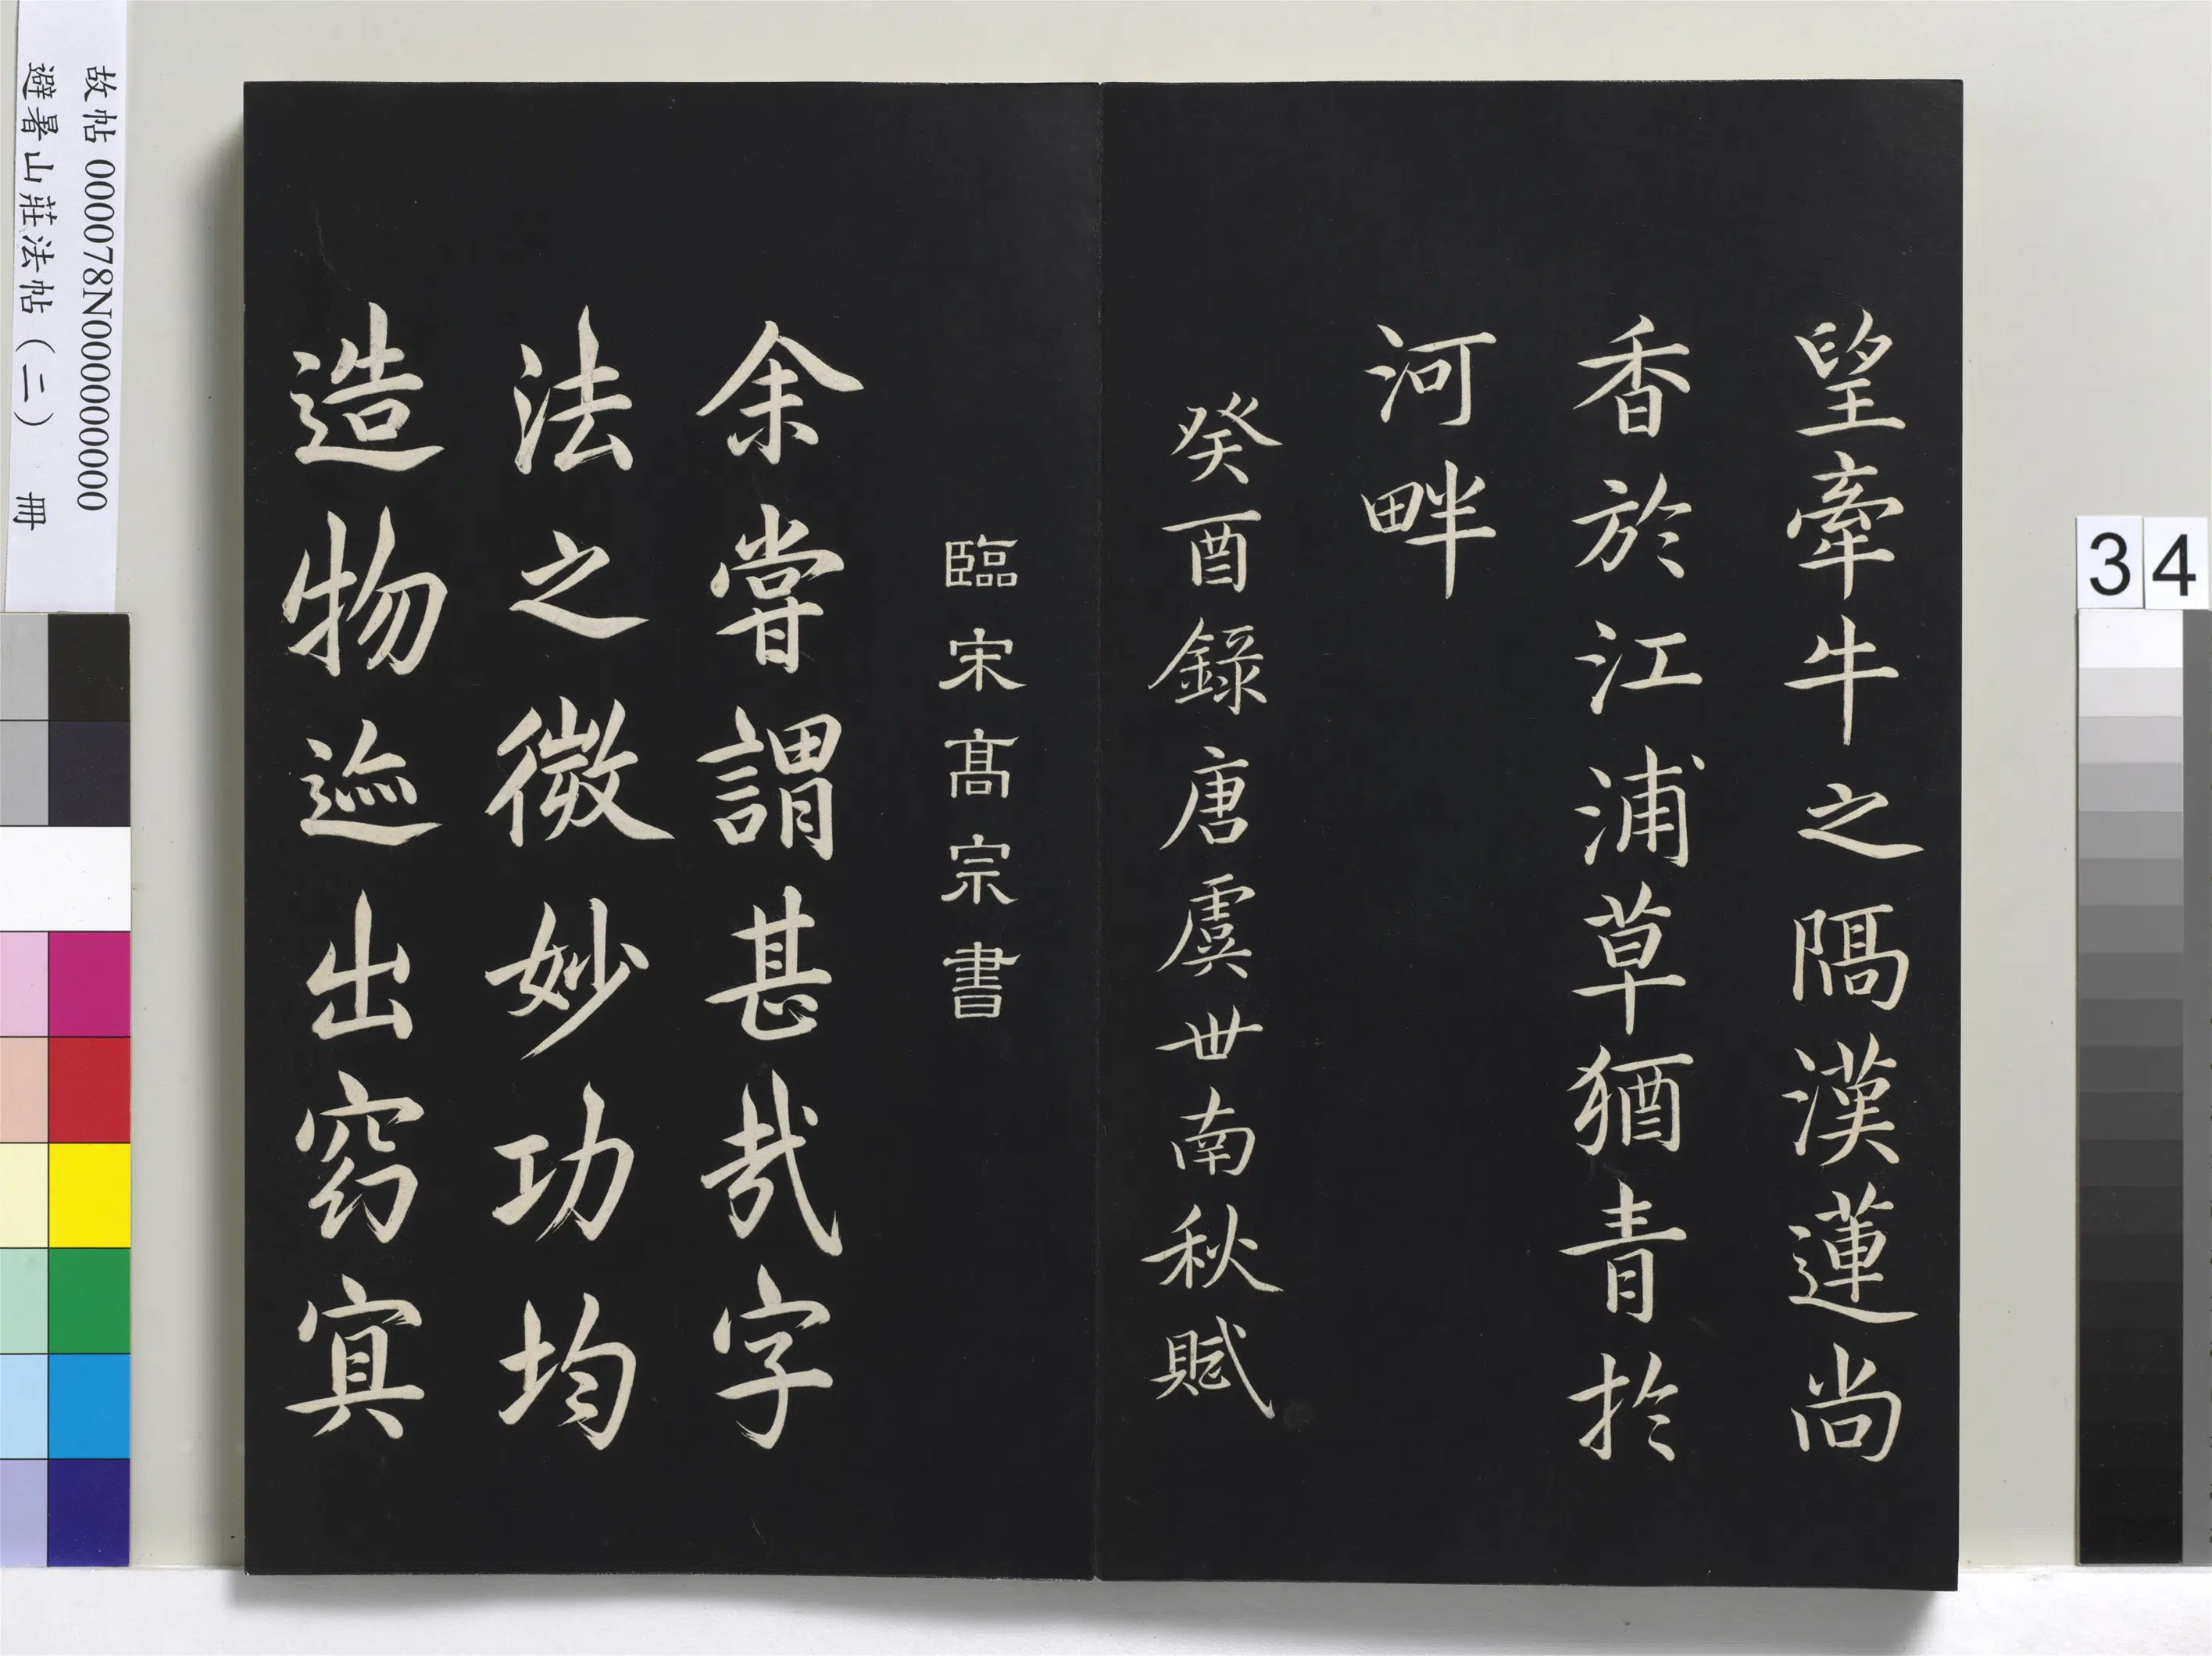 望牽牛之隔漢蓮尚
香於江浦草猶青於
河畔
癸酉錄唐虞世南秋賦
臨宋高宗書
余嘗謂甚哉字
法之微妙功均
造物迹出窈冥
故帖 000078N000000000
避暑山莊法帖（二） 冊
34